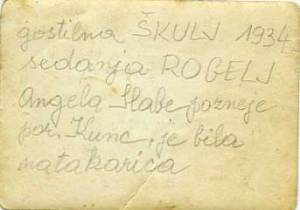 gostilna ŠKULJ 1934
sedanja ROGELJ
Angela Slabe pozneje
por. Kunc, je bila
natakarica